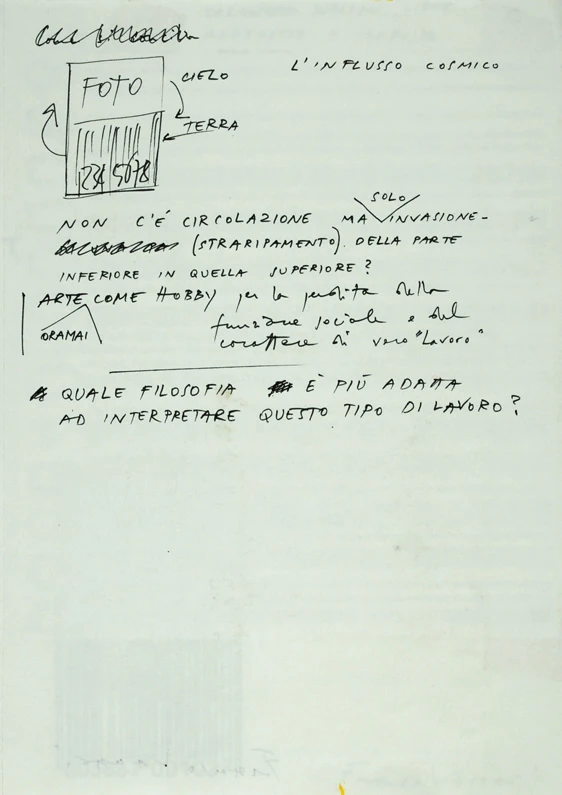 L'INFLUSSO COSMICO
FOTO
CIELO
TERRA
234 5678
SOLO
NON C'É CIRCOLAZIONE MA INVASIONE-
(STRARIPAMENTO). DELLA PARTE
INFERIORE IN QUELLA SUPERIORE?
ARTE COME HOBBY per la perdita della
ORAMAI
funzione sociale e del
carattere di vero "Lavoro"
QUALE FILOSOFIA È PIÙ ADATTA
AD INTERPRETARE QUESTO TIPO DI LAVORO?